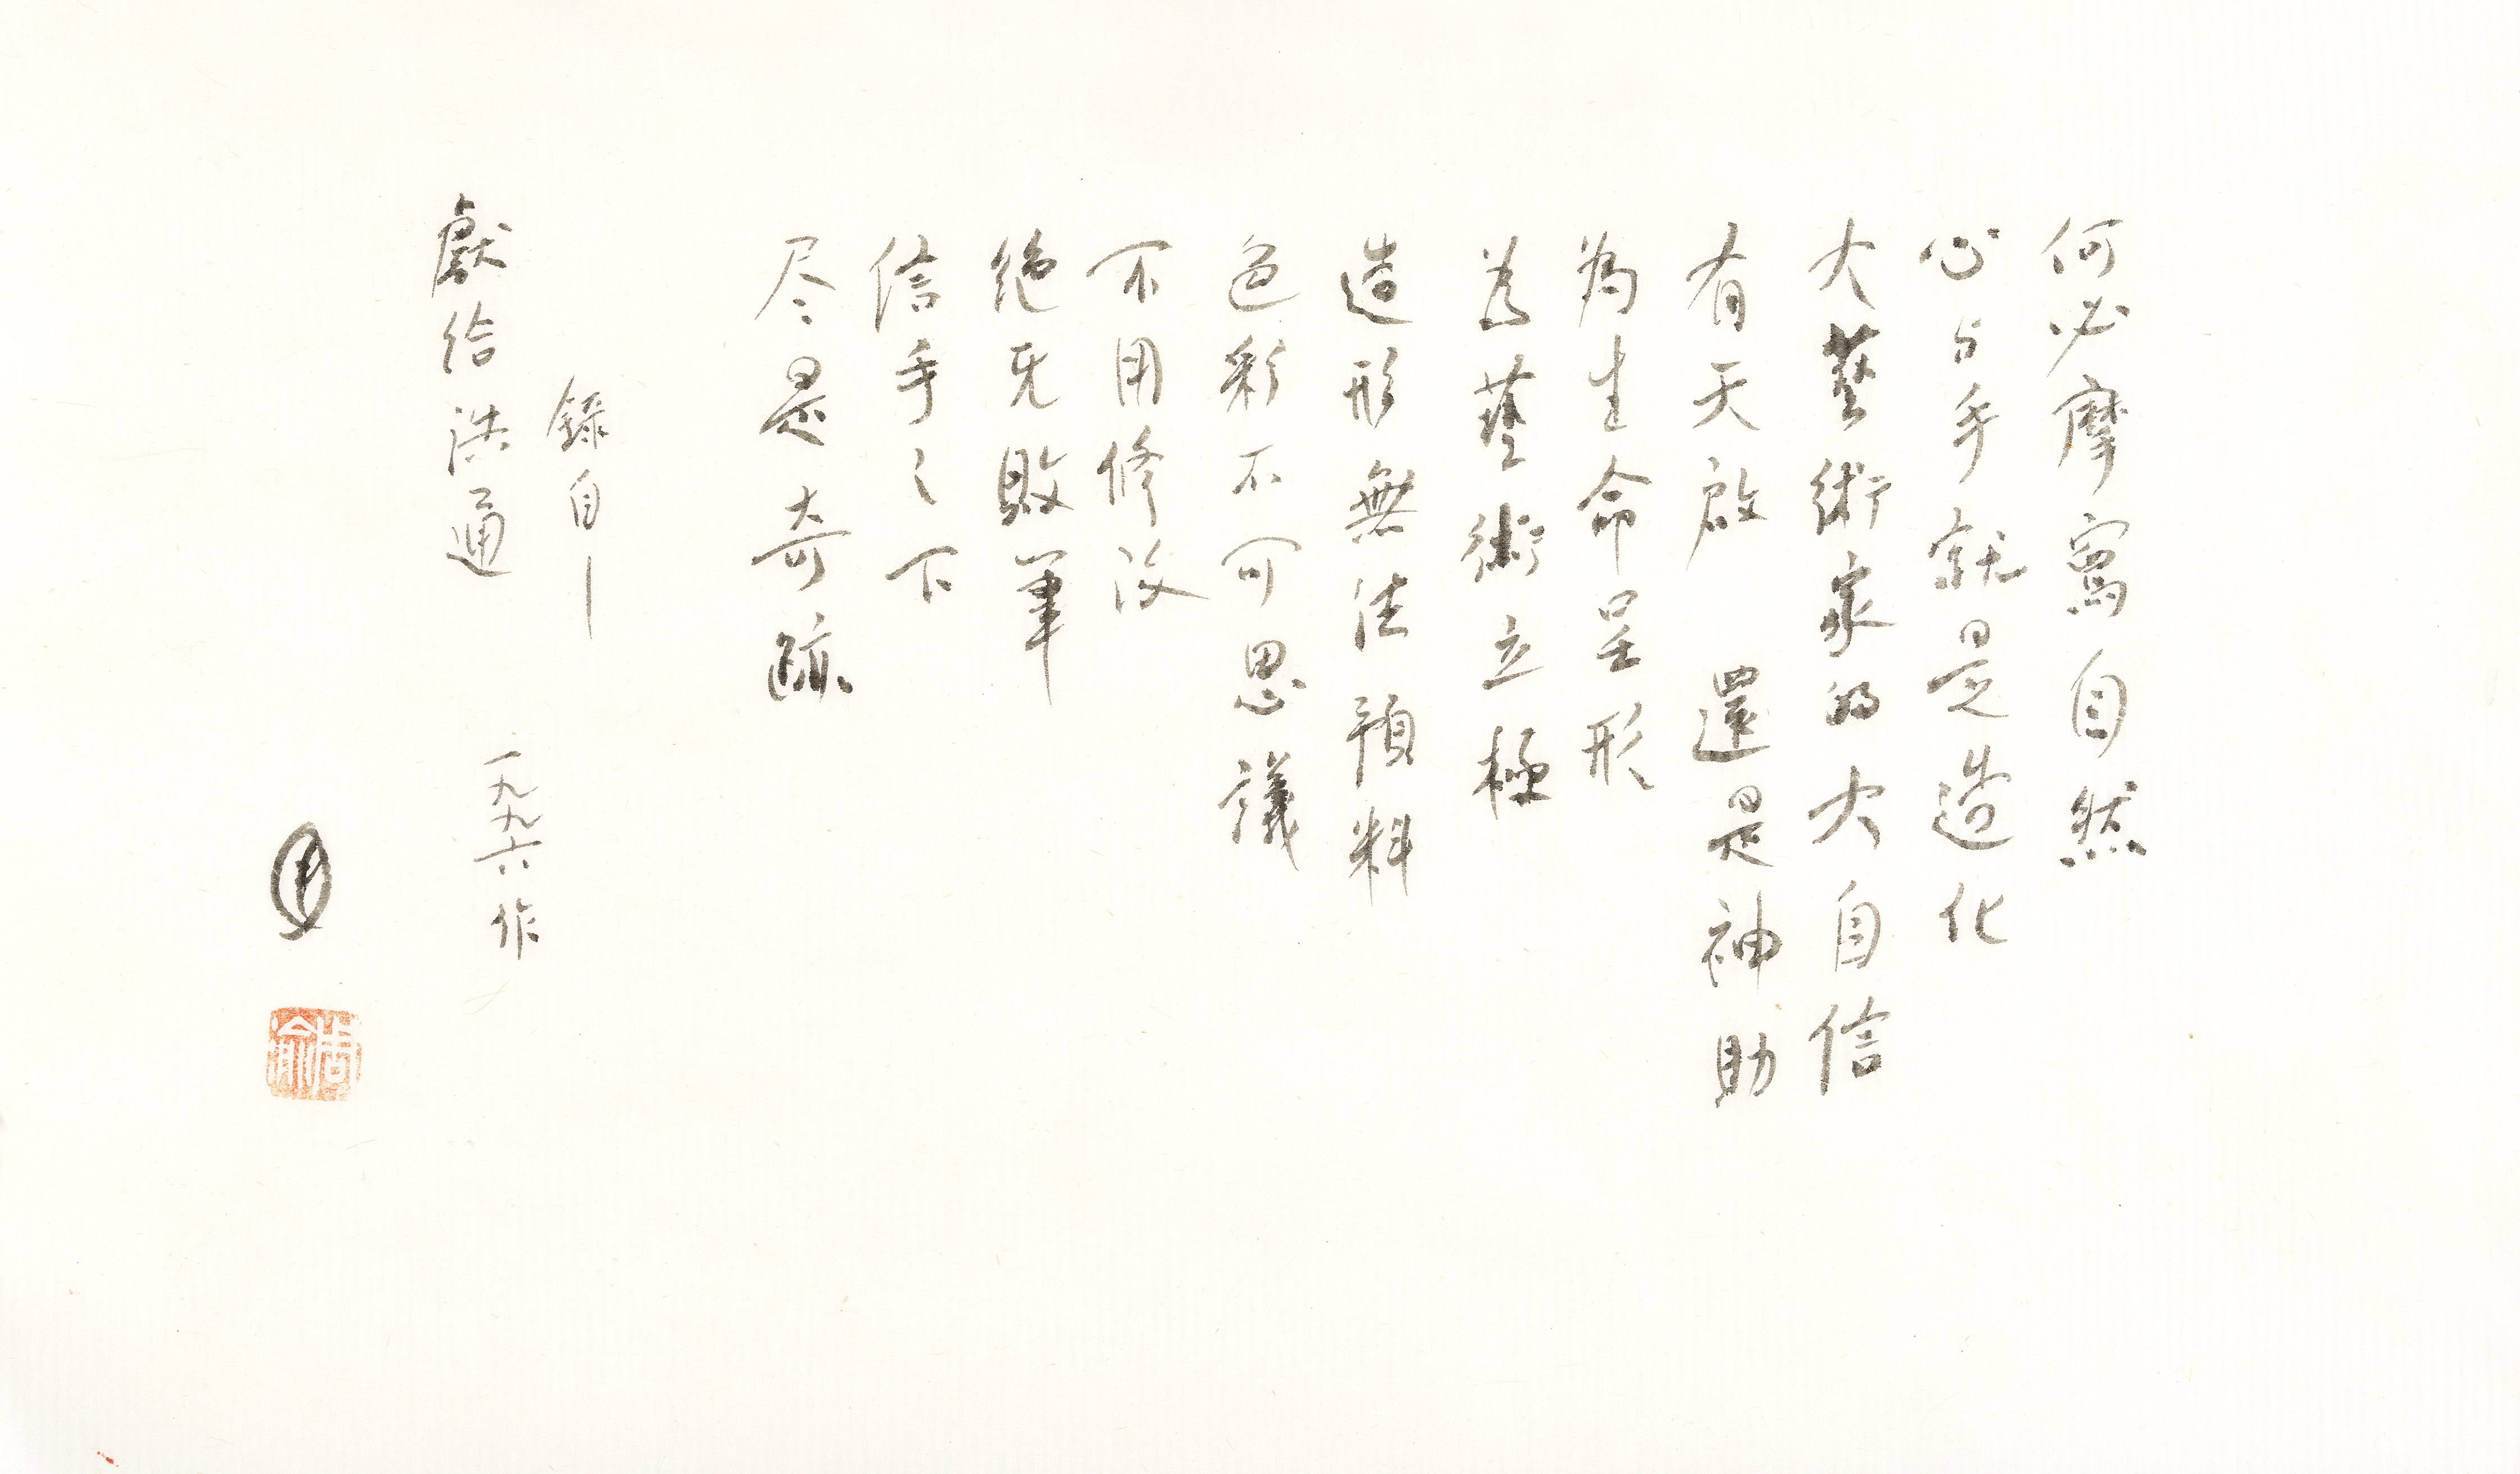 何必摩寫自然
心与手就是造化
大藝術家的大自信
有天啟 還是神助
為生命呈形
為藝術立極
造形無法預料
色彩不可思議
不用修改
絕无敗筆
信手之下
尽是奇蹟
錄自—
獻給浩通
一九九六作